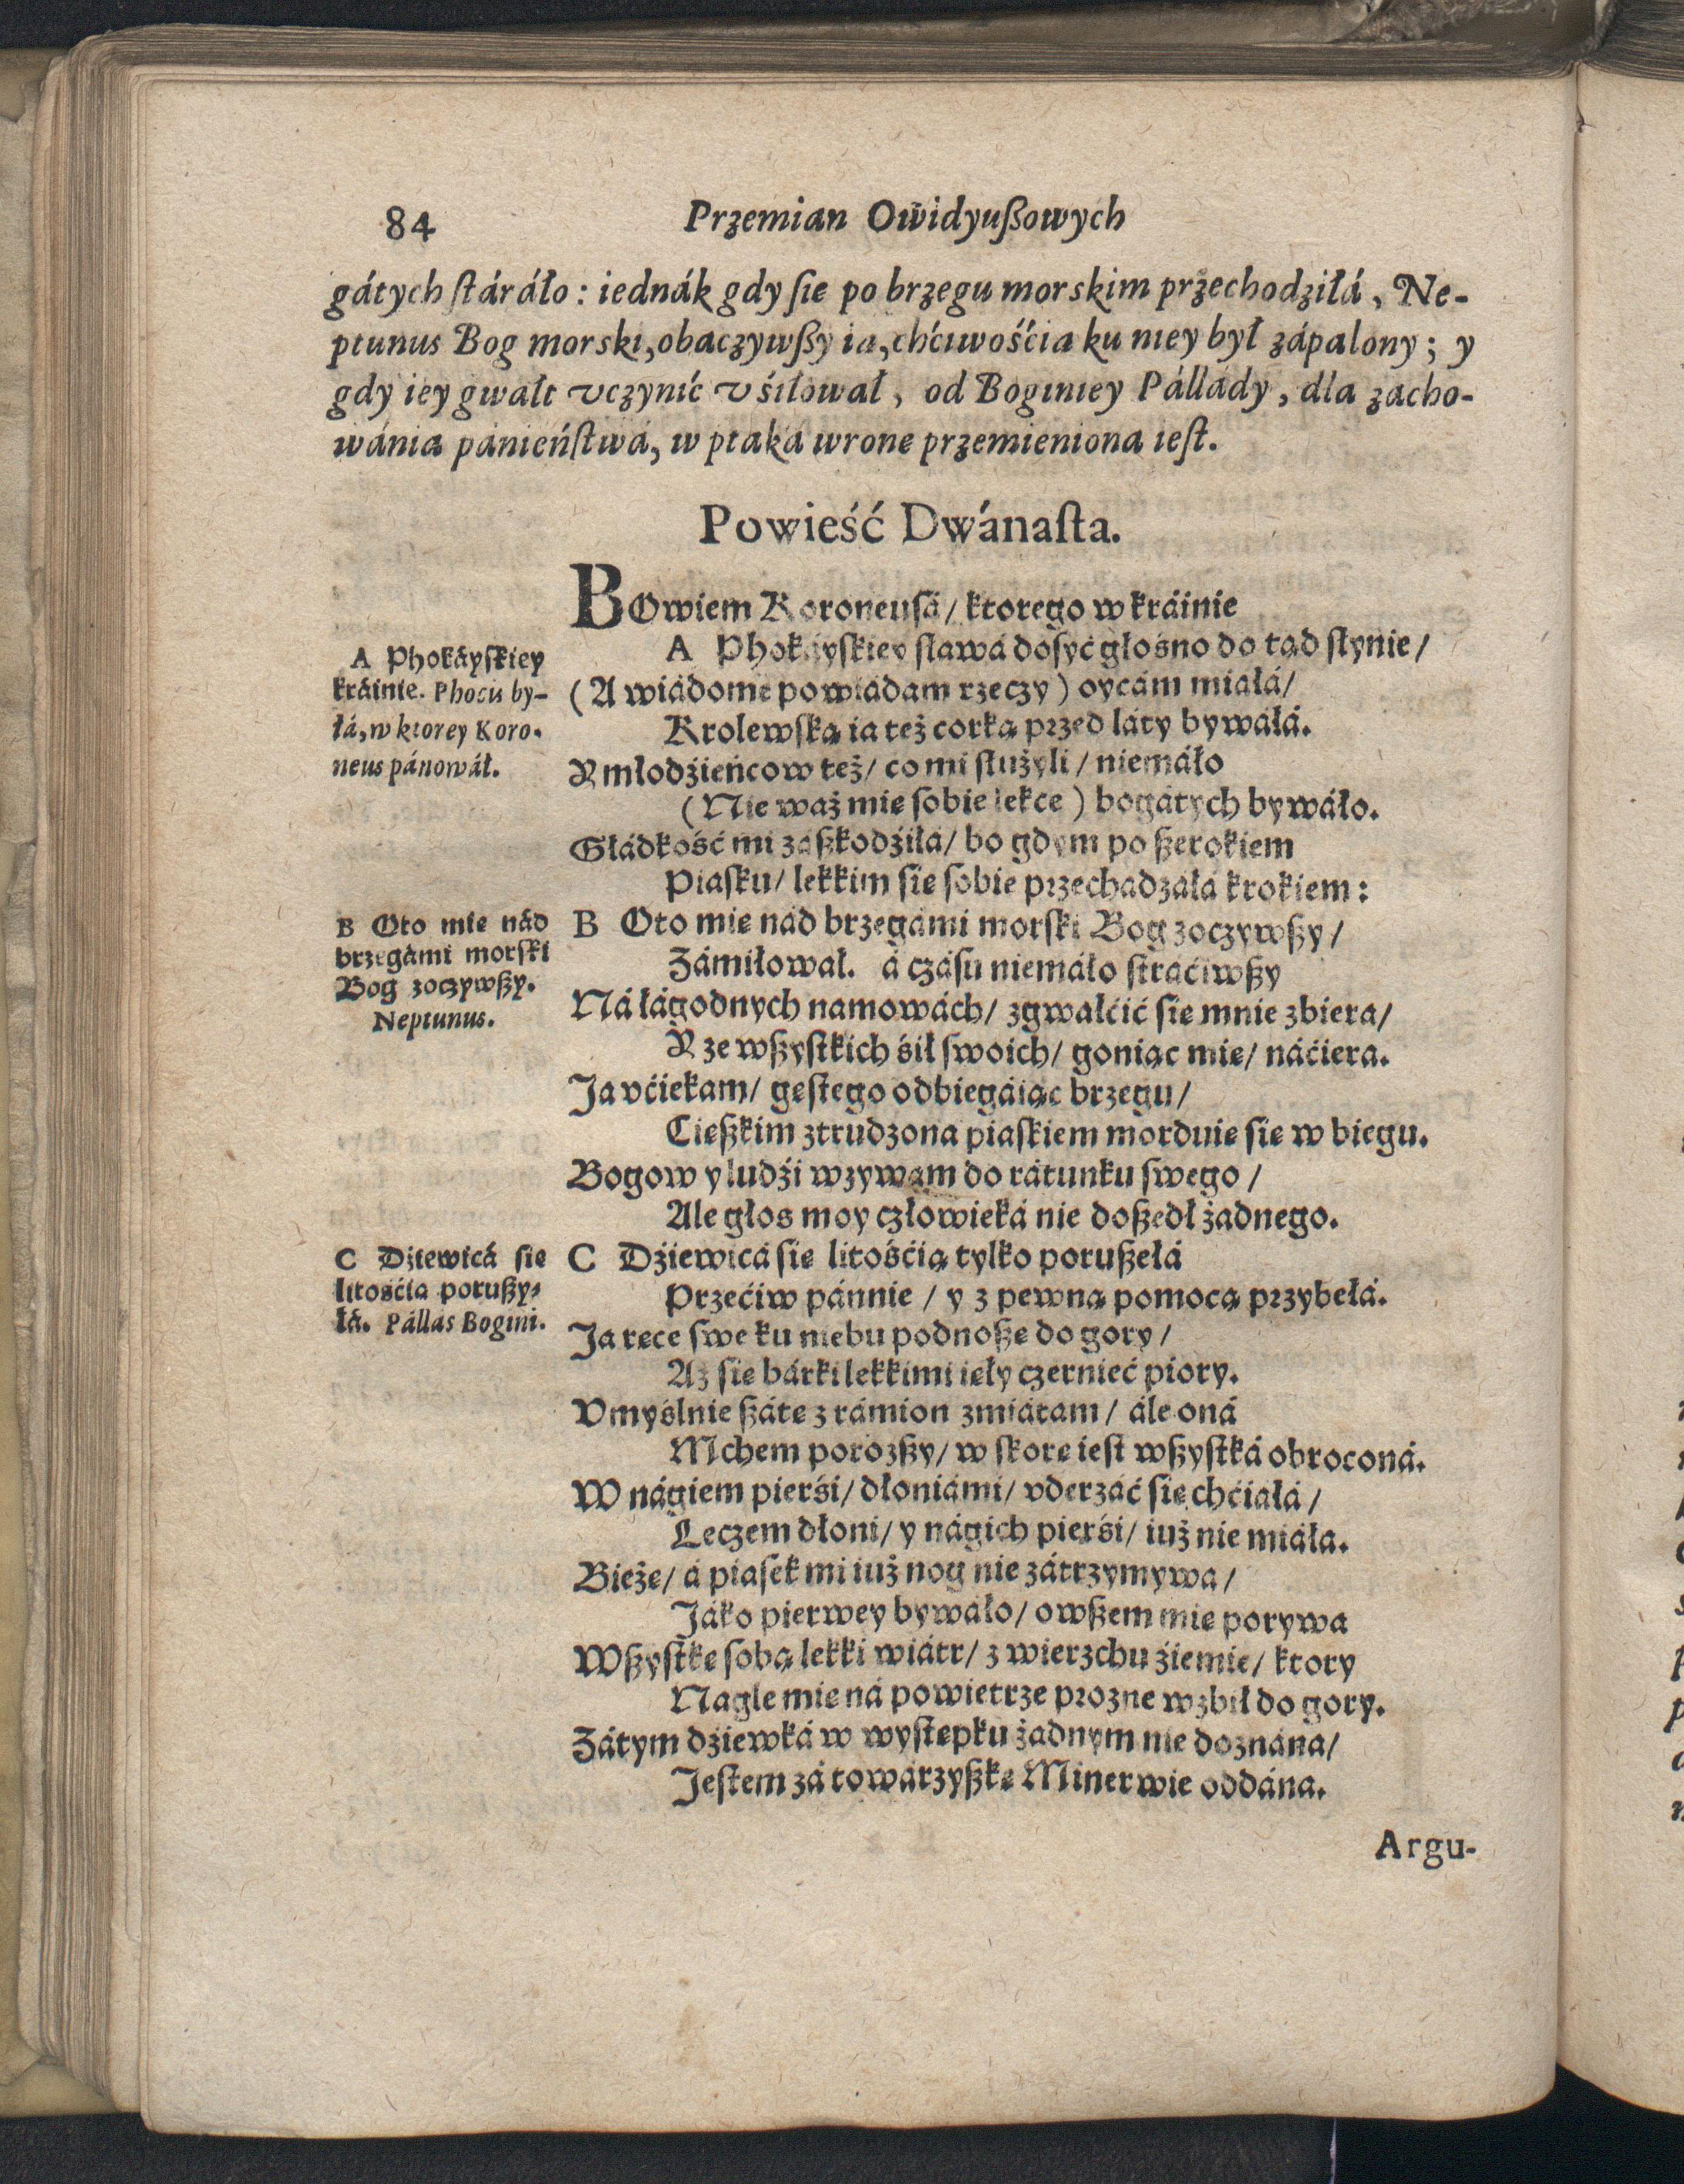 84
Przemian Owidyußowych
gátych ſtáráło: iednák gdy ſie po brzegu morskim przechodziłá, Ne-
ptunus Bog morski, obaczywßy ia, chćiwośćia ku niey był zápalony; y
gdy iey gwałt vczynić vśiłował, od Boginiey Pállády, dla zacho-
wánia pánieńſtwá, w ptaká wrone przemieniona ieſt.
Powieść Dwánaſta.
BOwiem Koroneuſá/ ktorego w kráinie
A Phokáyſkiey ſławá doſyć głośno do tąd ſłynie/
(A wiádome powiádam rzeczy) oycám miáłá/
Krolewſką ia też corką przed láty bywáłá.
Y młodźieńcow też/ co mi ſłużyli/ niemáło
(Nie waż mie ſobie lekce) bogátych bywáło.
Głádkość mi záßkodźiłá/ bo gdym po ßerokiem
Piaſku/ lekkim ſie ſobie przechadzáłá krokiem:
B Oto mie nád brzegámi morſki Bog zoczywßy/
Zámiłował. á czáſu niemáło ſtráćiwßy
Ná łágodnych namowách/ zgwałćić ſie mnie zbiera/
Y ze wßyſtkich śił ſwoich/ goniąc mie/ náćiera.
Ja vćiekam/ gęſtego odbiegáiąc brzegu/
Cießkim ztrudzona piaſkiem morduie ſie w biegu.
Bogow y ludźi wzywam do rátunku ſwego/
Ale głos moy człowieká nie doßedł żadnego.
C Dźiewicá ſie litośćią tylko porußełá
Przećiw pánnie/ y z pewną pomocą przybełá.
Ja ręce ſwe ku niebu podnoßę do gory/
Aż ſie bárki lekkimi ięły czernieć piory.
Vmyślnie ßátę z rámion zmiátam/ ále oná
Mchem porozßy/ w ſkorę ieſt wßyſtká obroconá.
W nágiem pierśi/ dłoniámi/ vderzáć ſię chćiáłá/
Leczem dłoni/ y nágich pierśi/ iuż nie miáła.
Bieżę/ á piaſek mi iuż nog nie zátrzymywa/
Jáko pierwey bywáło/ owßem mie porywa
Wßyſtkę ſobą lekki wiátr/ z wierzchu źiemie/ ktory
Nagle mię ná powietrze prozne wzbił do gory.
Zátym dźiewká w wyſtępku żadnym nie doznána/
Jeſtem zá towárzyßkę Minerwie oddána.
Argu-
A Phokáyſkiey
kráinie. Phocis by-
łá, w ktorey Koro-
neus pánował.
B Oto mie nád
brzegámi morſki
Bog zoczywßy.
Neptunus.
C Dźiewicá ſie
litośćia porußy-
łá. Pállas Bogini.